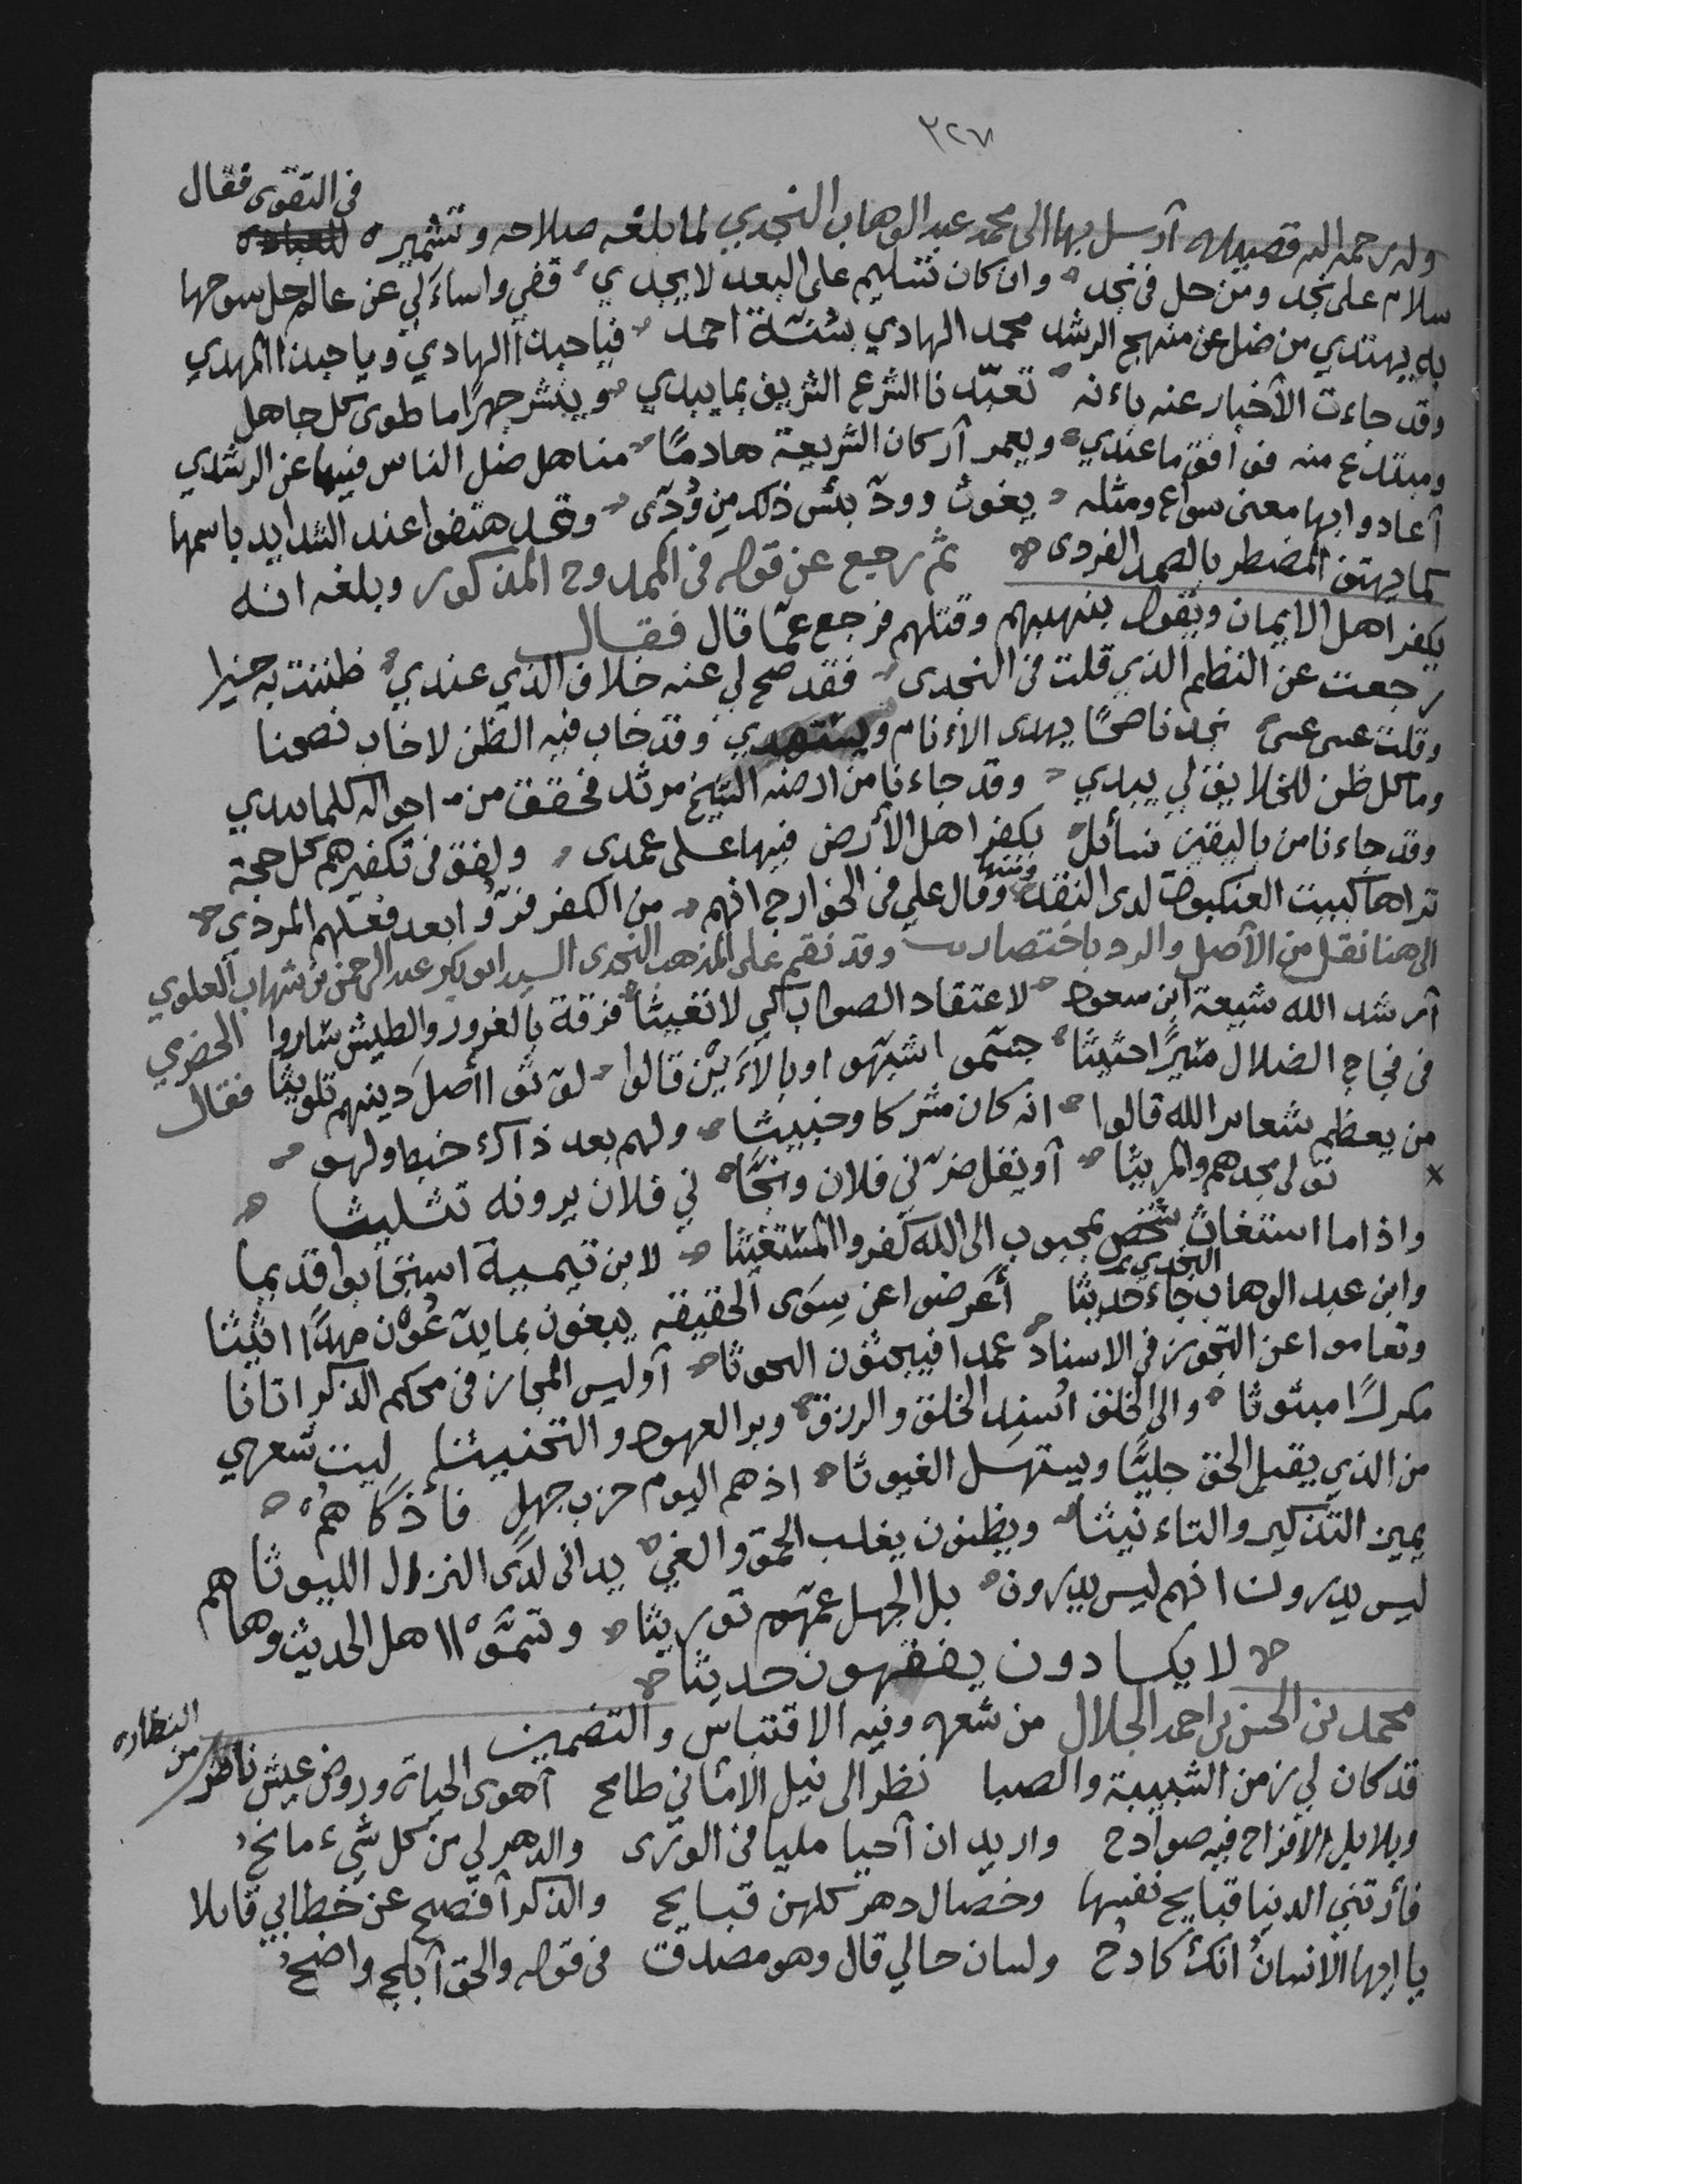 ٣٢٧
وله رحمه الله قصيده أرسل بها الى محمد عبد الوهاب النجدي لما بلغه صلاحه وتشميره في التقوى فقال
سلام على نجد ومن حل في نجد وان كان تسليم على البعد لا يجدي قفي واسأل لي عن عالم حل سوحها
به يهتدي من ضل عن منهج الرشد محمد الهادي بسنة احمد فيا حبذا الهادي ويا حبذا المهدي
وقد جاءت الأخبار عنه بأنه تعبدنا الشرع الشريف بما يبدي وينشر جهرًا ما طوى كل جاهل
ومبتدع منه فوافق ما عندي ويعمر أركان الشريعة هادمًا مناهل ضل الناس فيها عن الرشدي
أعادوا بها معنى سواع ومثله يغوث وود بئس ذلك من ودى وقد هتفوا عند الشدايد باسمها
كما يهتف المضطر بالصمد الفردى ثم رجع عن قوله في الممدوح المذكور وبلغه انه
يكفر اهل الايمان ويقول بنهبهم وقتلهم فرجع عمّا قال فقال
رجعت عن النظم الذي قلت في النجدى فقد صح لي عنه خلاف الذي عندي ظننت به خيرا
وقلت عسى عسى نجد ناصحًا يهدى الأنام ويستهدي وقد خاب فيه الظن لا خاب نصحنا
وما كل ظن للخلايق لي يبدي وقد جاءنا من ارضه الشيخ مربد فحقق من احواله كلما يبدي
وقد جاءنا من باليقين نسائل يكفر اهل الأرض فيها على عمدى ولفق في تكفيرهم كل حجة
تراها كبيت العنكبوت لدى النقد ومنها وقال علي في الخوارج انهم من الكفر فرّوا بعد فعلهم المردي
الى هنا نقل من الأصل والرد باختصار وقد نقم على المذهب النجدى السيد ابو بكر عبد الرحمن بن شهاب العلوي الحضرمي فقال
أرشد الله شيعة ابن سعود لاعتقاد الصواب كي لا تغيثا فرقة بالغرور والطيش ساروا
في فجاج الضلال سيرًا حثيثا جسّموا شبّهوا وبالأين قالوا لوّثوا أصل دينهم تلويثا
من يعظم شعاير الله قالوا انه كان مشركا وخبيثا ولهم بعد ذاك خبط ولهو
نولى مجدهم والمريثا أو يقل ضرّني فلان ونجّا ني فلان يرونه تثليثا
واذا ما استغاث شخص بمحبوب الى الله كفروا المستغيثا لابن تيمية استجابوا قديما
وابن عبد الوهاب النجدي جاء حديثا أعرضوا عن سوى الحقيقة يبغون بما يدّعون مهدًا اثيثا
وتعاموا عن التجوز في الاسناد عمدا فيبحثون البحوثا أوليس المجاز في محكم الذكر اتانا
مكررًا مبثوثا والى الخلق اسند الخلق والرزق وبر العهود والتحنيثا ليت شعري
من الذي يقبل الحق جليًا ويستهل الغيوثا اذ هم اليوم حزب جهل فأذكاهم
يميز التذكير والتأنيثا ويظنون يغلب الحمق والغي يدانى لدى النزال الليوثا
ليس يدرون انهم ليس يدرون بل الجهل عمّهم توريثا وتسمّوا اهل الحديث وها هم
لا يكادون يفقهون حديثا
محمد بن الحسن بن احمد الجلال من شعره وفيه الاقتباس والتضمين
قد كان لي زمن الشبيبة والصبا نظر الى نيل الاماني طامح أهوى الحياة وروض عيش ناظر من النظاره
وبلابل الأفراح فيه صوادح واريد ان أحيا مليا في الورى والدهر لي من كل شيء مانح
فأرتني الدنيا قبايح نفسها وخصال دهر كلهن قبايح والذكر أفصح عن خطابي قايلا
يا ايها الانسان انك كادح ولسان حالي قال وهو مصدق في قوله والحق أبلج واضح